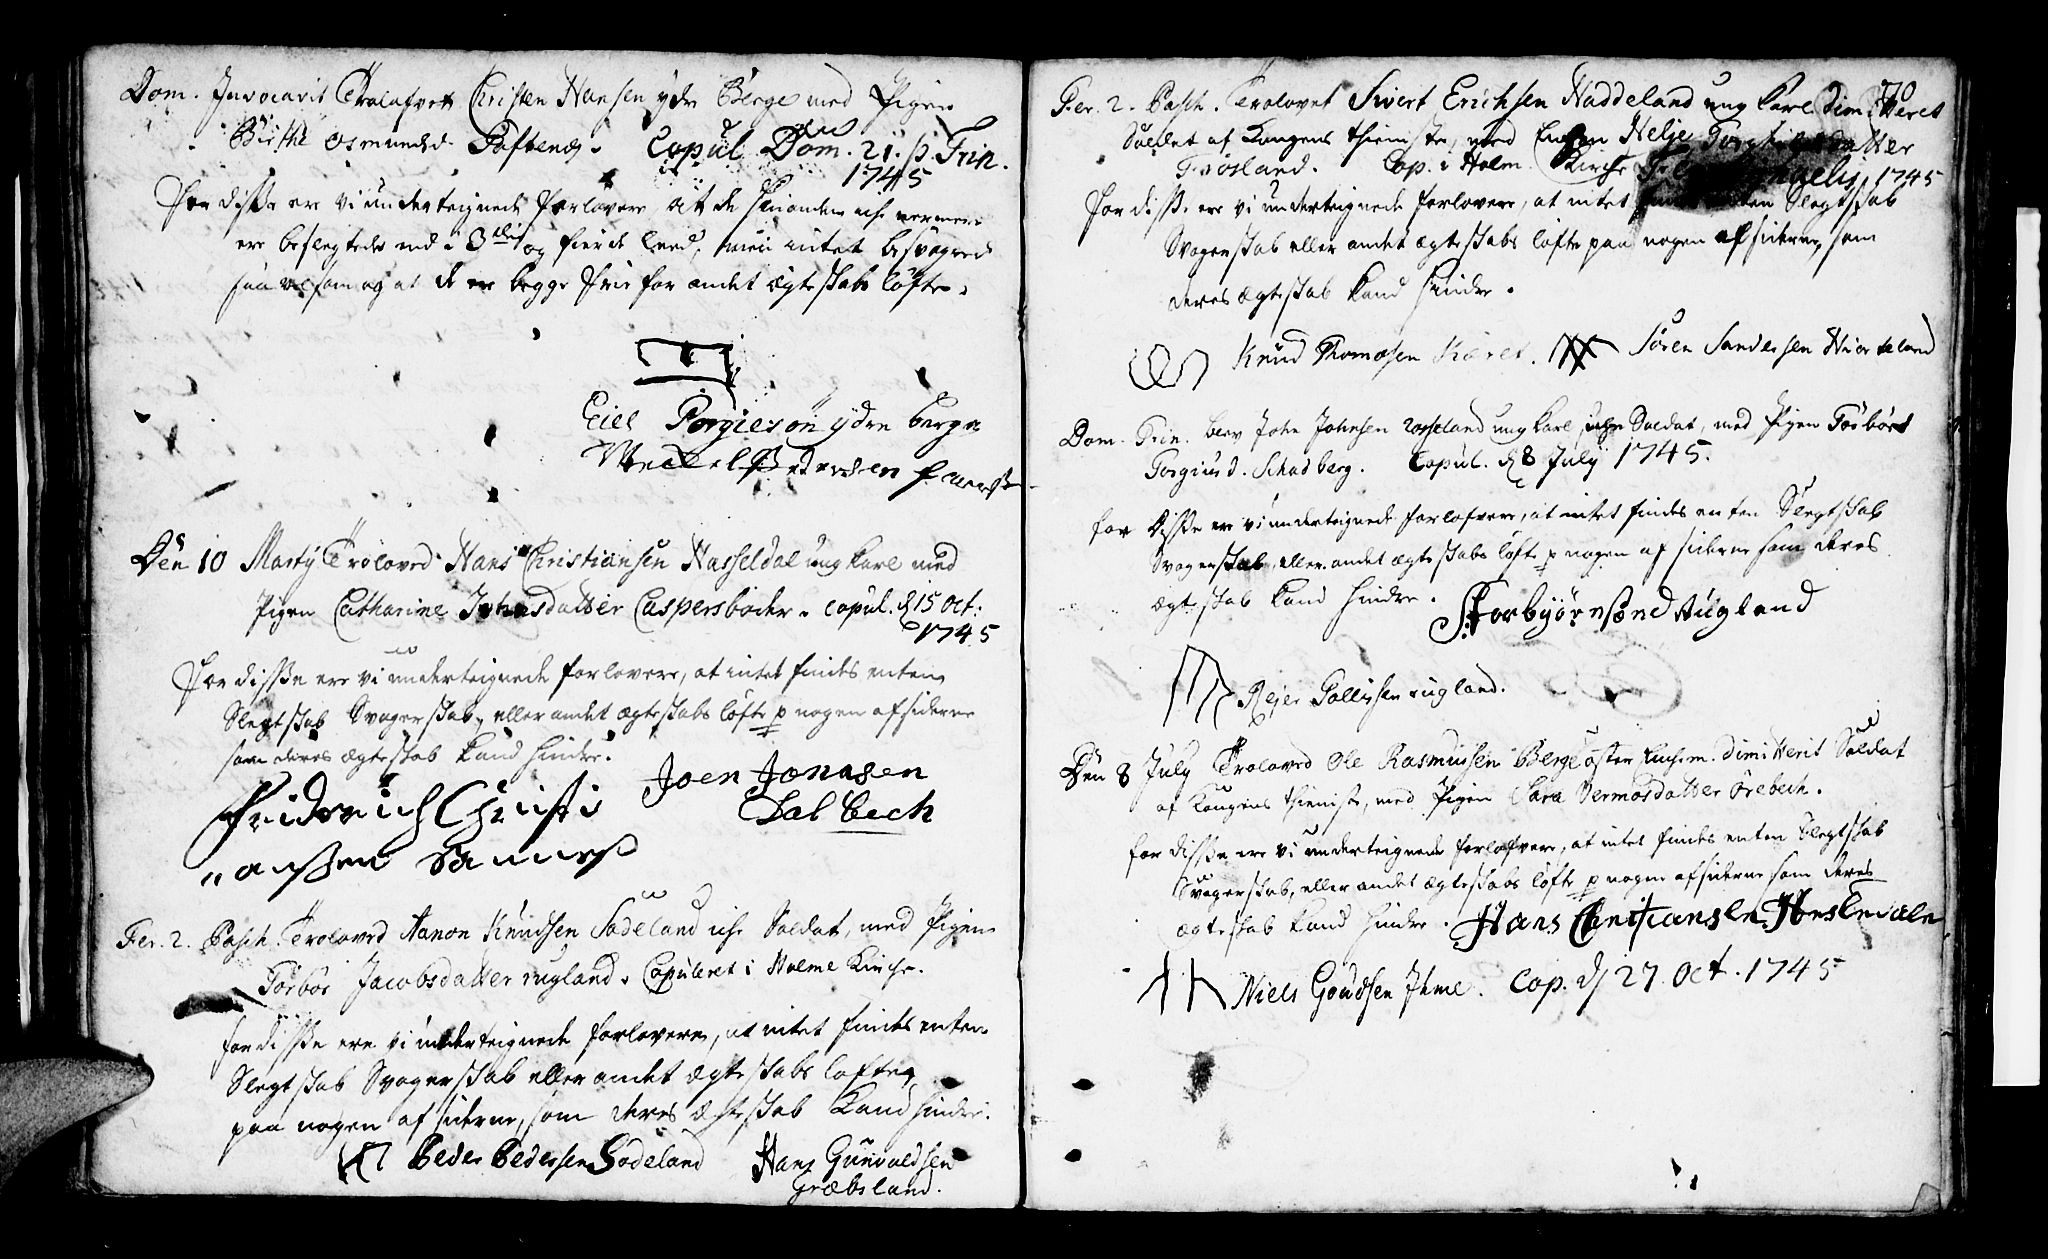 Dom. Invocavit Trolafvet Christen Hansen ydre Berge med Pigen
Birthe Osmundsd. Copul. Dom. 21. p. Trin.
1745
For disse ere vi underteignede forlovere, at de hinanden icke nermere
ere beslegtede end i 3die og fierde leed, men intet besvogrede
saavelsom og at de er begge frie for andet ægteskabs løfte.
Eiel Torgieson ydre berge
Pedersen
Den 10 Marty Troloved Hans Christiansen Hasseldal ung karl med
Pigen Catharine Johnsdatter Caspersboder. copul. d 15 Oct:
1745
For disse ere vi underteignede forlovere, at intet findes enten
Slegtskab Svogerskab, eller andet ægteskabs løfte p nogen af siderne
som deres ægteskab kand hindre.
Fridrich Christi
Joen Jonnsen
Dalbech
„anssen
Fer. 2. Pasch. Troloved Aanon Knudsen Sodeland Soldat, med Pigen
Torbor Jacobsdatter rugland. Copuleret i Holme Kirche.
for disse ere vi underteignede forlovere, at intet findes enten
Slegtskab Svogerskab eller andet ægteskabs løfte,
paa nogen af siderne, som deres ægteskab kand hindre.
Peder Pedersen Sodeland Hans Gunvaldsen
Græbsland.
70
Fer. 2. Pasch. Trolovet Sivert Erichsen Haddeland ung karl dimitteret
Soldet af Kongens thieniste, med Enken Helje Torgiersdatter
Trøsland. Cop. i Holm Kirche 1745
for disse ere vi underteignede forlovere, at intet findes enten Slegtskab
Svogerskab eller andet ægteskabs løfte paa nogen af siderne, som
deres ægteskab kand hindre.
Knud Thomæsen Søren Sandersen Hiorteland
Dom. Trin. blev John Johnsen rosseland ung karl, Soldat, med Pigen Torbor
Torgiusd. Schadberg. Copul. d 8 July 1745.
for Disse ere vi underteignede forlofvere, at intet findes enten Slegtskab
Svogerskab, eller andet ægteskabs løfte p nogen af siderne som deres
ægteskab kand hindre.
Torbyørnsønd Augland
Rejer Tollissen rugland.
Den 8 July Troloved Ole Rasmussen Berge øster Enchem. dimitterit Soldat
af Kongens thieniste, med Pigen Sara Vermosdatter Ørebech.
for disse ere vi underteignede forlofvere, at intet findes enten Slegtskab
Svogerskab, eller andet ægteskabs løfte p nogen af siderne som deres
ægteskab kand hindre. Hans Christiansen Hesledalen
Niels Goudsen Ihme. Cop. d 27. Oct. 1745